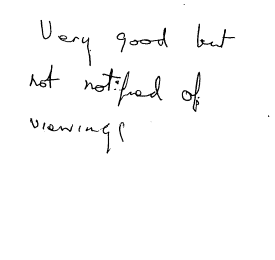 Very good but
not notified of
viewings